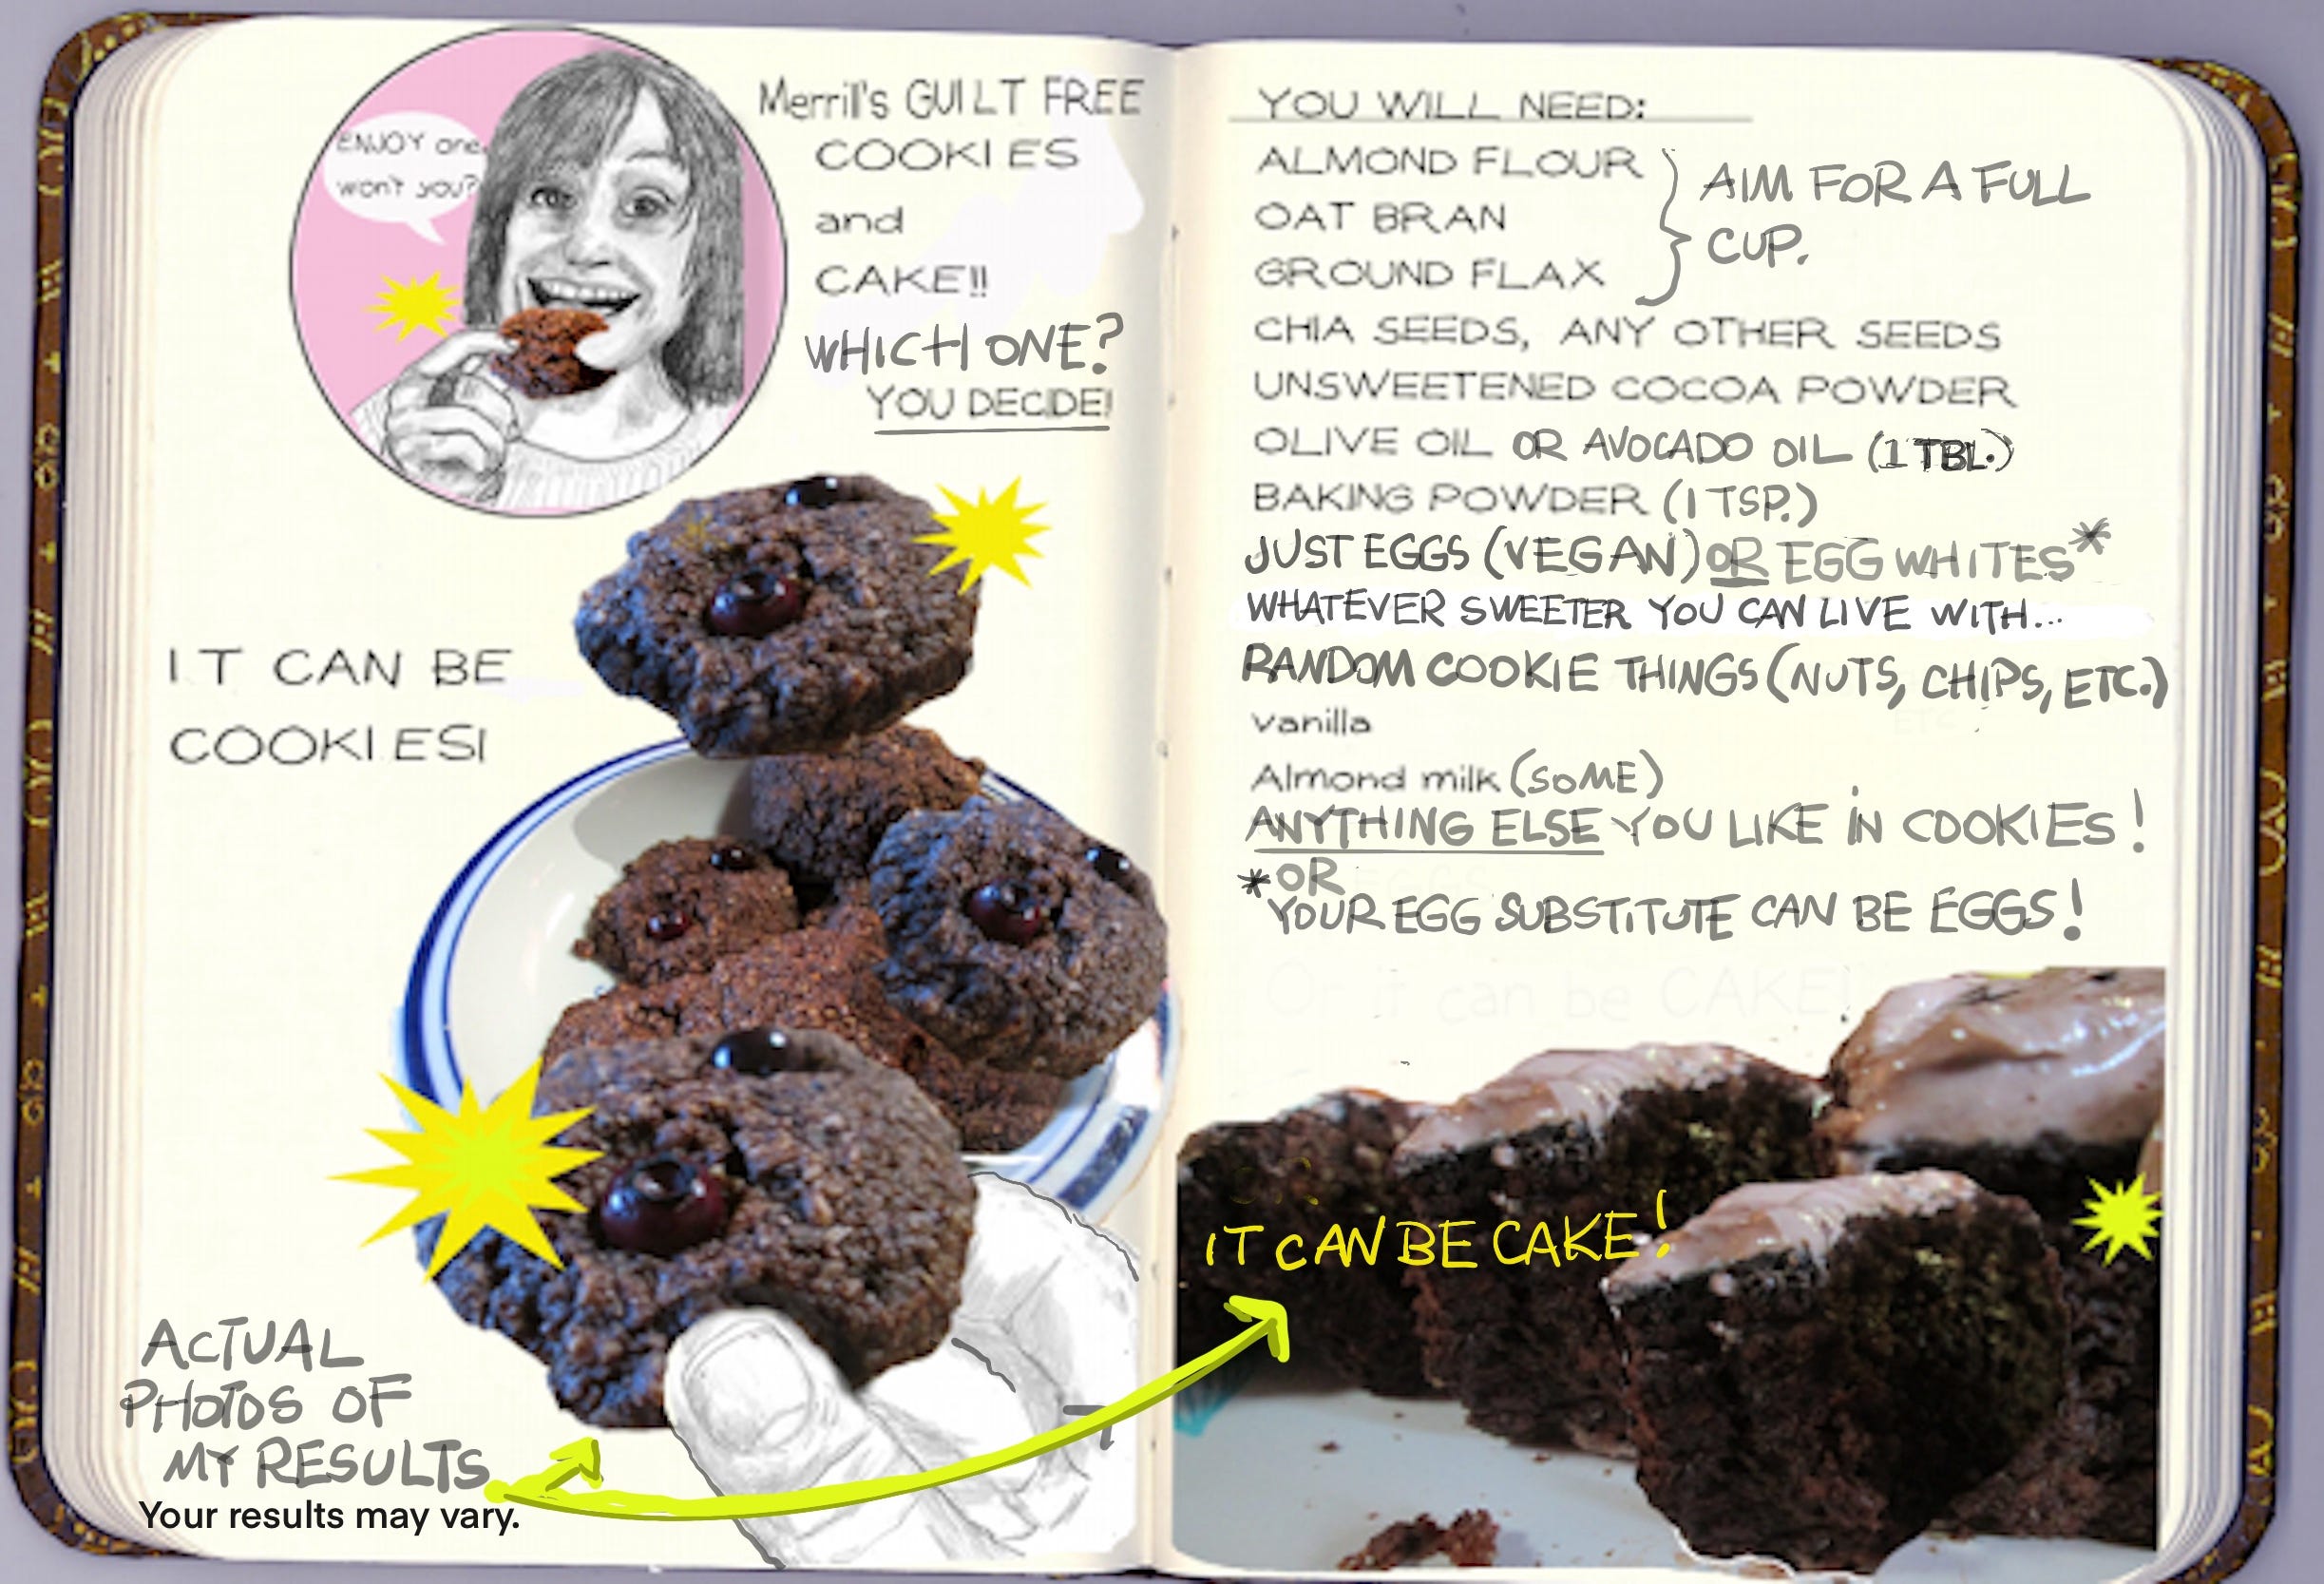 ENJOY one
won't you?
Merrill's GUILT FREE
COOKIES
and
CAKE!!
WHICH ONE?
YOU DECIDE!
IT CAN BE
COOKIES!
ACTUAL
PHOTOS OF
MY RESULTS
Your results may vary.
YOU WILL NEED:
ALMOND FLOUR
OAT BRAN
GROUND FLAX
AIM FOR A FULL
CUP.
CHIA SEEDS, ANY OTHER SEEDS
UNSWEETENED COCOA POWDER
OLIVE OIL OR AVOCADO OIL (1 TBL.)
BAKING POWDER (1 TSP.)
JUST EGGS (VEGAN) OR EGG WHITES*
WHATEVER SWEETER YOU CAN LIVE WITH...
RANDOM COOKIE THINGS (NUTS, CHIPS, ETC.)
vanilla
Almond milk (SOME)
ANYTHING ELSE YOU LIKE IN COOKIES!
*OR
YOUR EGG SUBSTITUTE CAN BE EGGS!
Or it can be CAKE!
IT CAN BE CAKE!